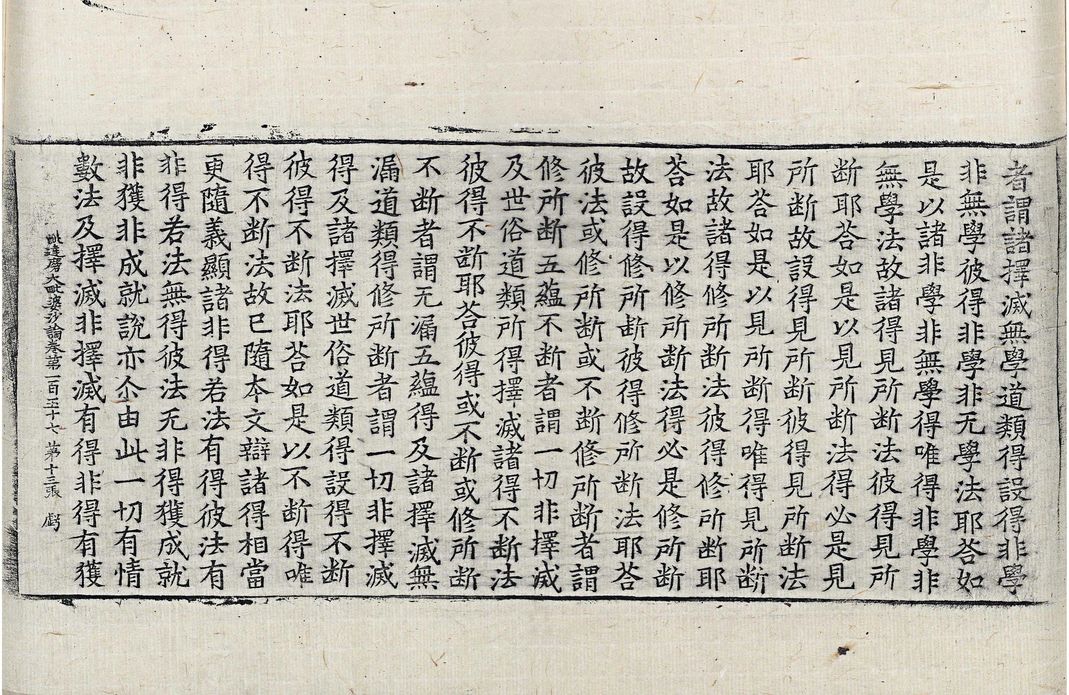 者謂諸擇滅無學道類得設得非學
非無學彼得非學非无學法耶荅如
是以諸非學非無學得唯得非學非
無學法故諸得見所断法彼得見所
断耶荅如是以見所断法得必是見
所断故設得見所断彼得見所断法
耶荅如是以見所断得唯得見所断
法故諸得修所断法彼得修所断耶
荅如是以修所断法得必是修所断
故設得修所断彼得修所断法耶荅
彼法或修所断或不断修所断者謂
修所断五蘊不断者謂一切非擇滅
及世俗道類所得擇滅諸得不断法
彼得不断耶荅彼得或不断或修所断
不断者謂无漏五蘊得及諸擇滅無
漏道類得修所断者謂一切非擇滅
得及諸擇滅世俗道類得設得不断
彼得不断法耶荅如是以不断得唯
得不断法故已隨本文辯諸得相當
更隨義顯諸非得若法有得彼法有
非得若法無得彼法无非得獲成就
非獲非成就說亦尒由此一切有情
數法及擇滅非擇滅有得非得有獲
毗達磨大毗婆沙論卷第一百五十七 苐十三張 虧